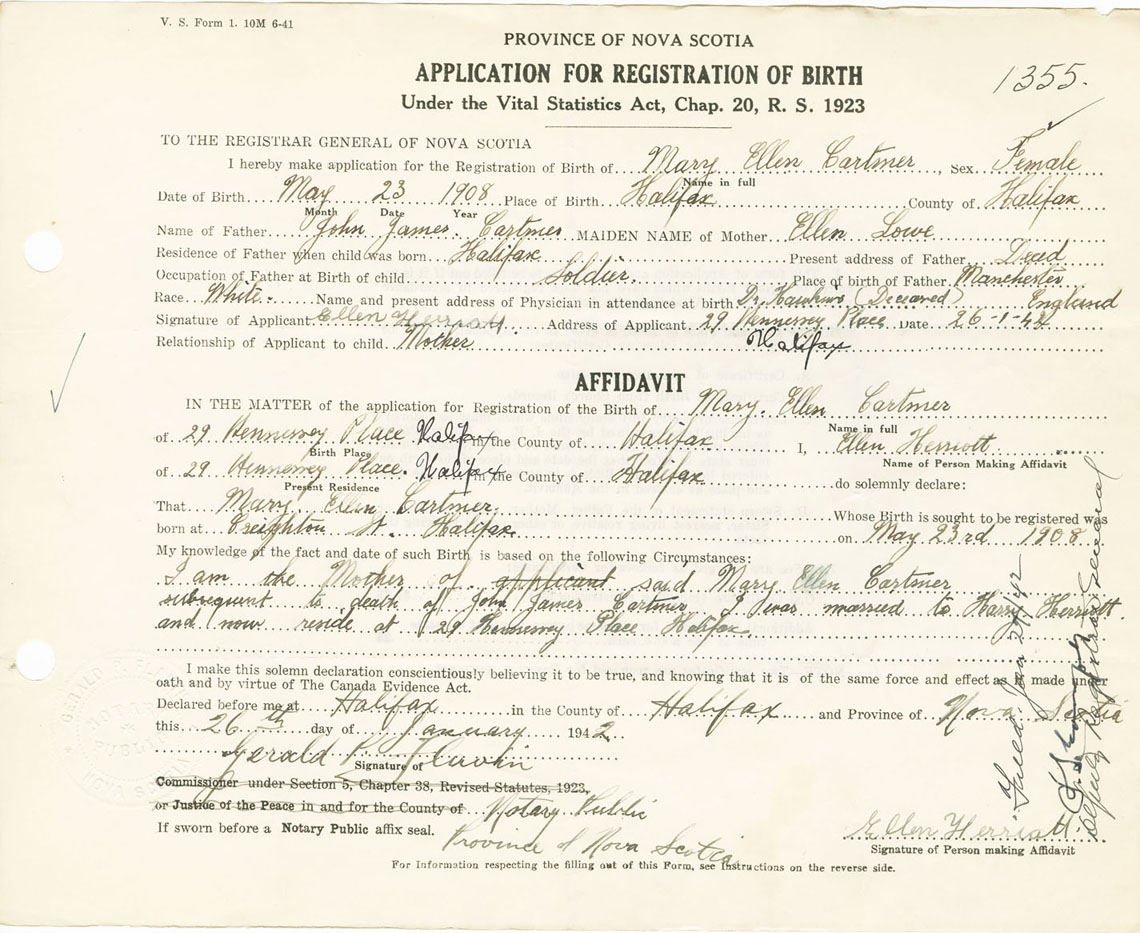 V. S. Form 1. 10M 6-41
PROVINCE OF NOVA SCOTIA
APPLICATION FOR REGISTRATION OF BIRTH
1355.
Under the Vital Statistics Act, Chap. 20, R. S. 1923
TO THE REGISTRAR GENERAL OF NOVA SCOTIA
I hereby make application for the Registration of Birth of Mary Ellen Cartmer, Sex Female
Name in full
Date of Birth May 23 1908 Place of Birth Halifax County of Halifax
Month Date Year
Name of Father John James Cartmer MAIDEN NAME of Mother Ellen Lowe
Residence of Father when child was born Halifax Present address of Father Dead
Occupation of Father at Birth of child Soldier. Place of birth of Father Manchester
Race White. Name and present address of Physician in attendance at birth Dr. Hawkins (Deceased) England
Signature of Applicant Ellen Herriott Address of Applicant 29 Hennessey Place Date 26-1-42
Relationship of Applicant to child Mother Halifax
AFFIDAVIT
IN THE MATTER of the application for Registration of the Birth of Mary Ellen Cartmer
Name in full
of 29 Hennessey Place Halifax in the County of Halifax I, Ellen Herriott
Birth Place
Name of Person Making Affidavit
of 29 Hennessey Place. Halifax in the County of Halifax do solemnly declare:
Present Residence
That Mary Ellen Cartmer Whose Birth is sought to be registered was
born at Creighton St. Halifax on May 23rd 1908
My knowledge of the fact and date of such Birth is based on the following Circumstances:
I am the Mother of applicant said Mary Ellen Cartmer
subsequent to death of John James Cartmer I was married to Harry Herriott
and now reside at 29 Hennessey Place Halifax
I make this solemn declaration conscientiously believing it to be true, and knowing that it is of the same force and effect as if made under
oath and by virtue of The Canada Evidence Act.
Declared before me at Halifax in the County of Halifax and Province of Nova Scotia
this 26th day of January 1942.
Gerald P. Flavin
Signature of
Commissioner under Section 5, Chapter 38, Revised Statutes, 1923,
or Justice of the Peace in and for the County of Notary Public
If sworn before a Notary Public affix seal.
Province of Nova Scotia
Ellen Herriott
Signature of Person making Affidavit
For Information respecting the filling out of this Form, see Instructions on the reverse side.
Filed Jan 27/42
Deputy Registrar General